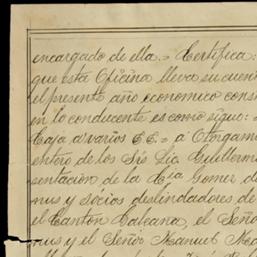 encargado de ella.= Certifica:
que esta Oficina lleva su cuen
el presente año economico cons
en lo conducente es como sigue:=
Caja á varios CC.= á Otorgam
entero de los Srs Lic Guillerm
sentación de la Cia Gomez de
nus y Sócios deslindadores de
el Canton Galeana, el Seño
nus y el Señor Manuel